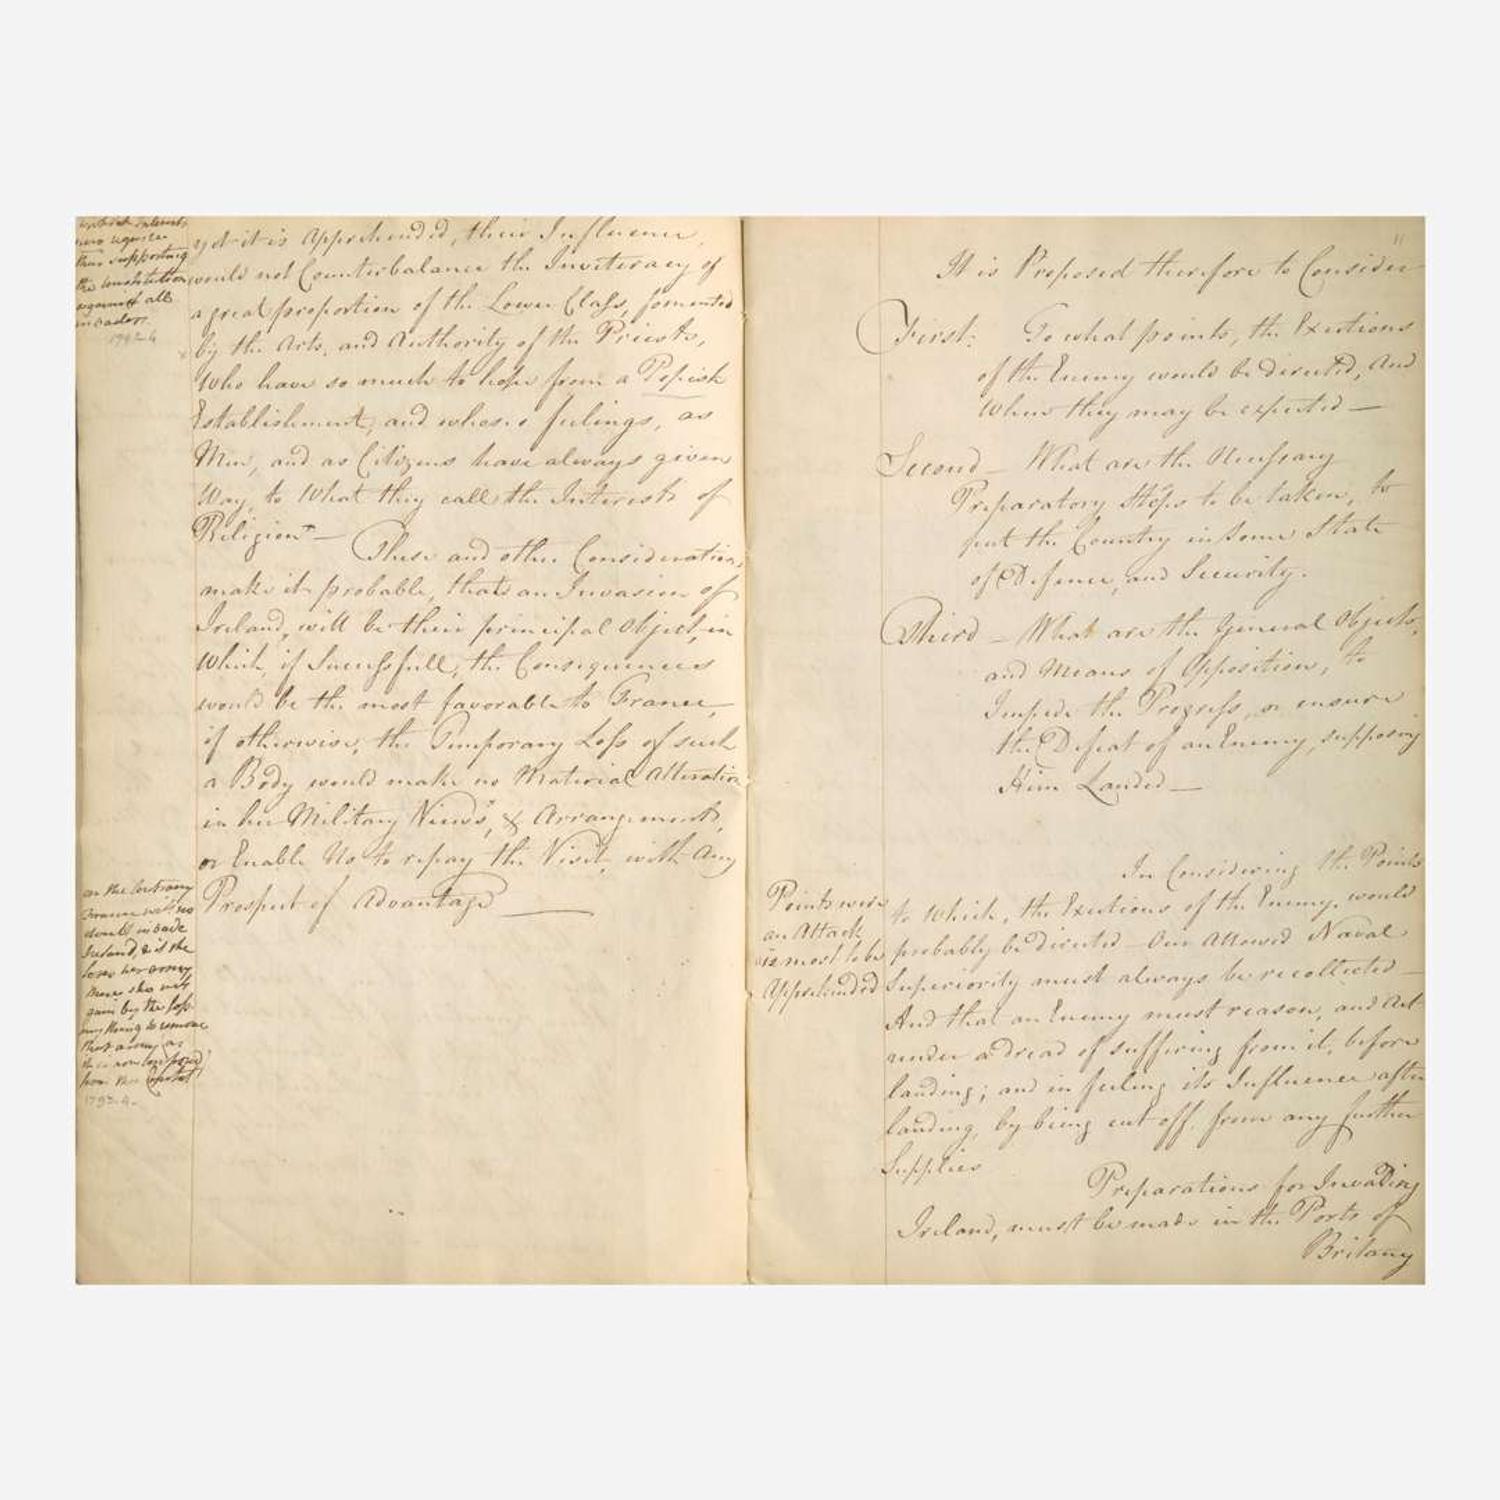 their supporting
the constitution
against all
invaders.
1793-4
yet it is Apprehended, their Influence,
would not Counterbalance the Inviteracy of
a great proportion of the Lower Class, fomented
by the Arts, and Authority of the Priests,
Who have so much to hope from a Popish
Establishment, and whose feelings, as
Men, and as Citizens have always given
Way, to What they call the Interests of
Religion — These and other Considerations,
make it probable, that an Invasion of
Ireland, will be their principal Object, in
Which, if Successfull, the Consequences
would be the most favorable to France,
if otherwise, the Temporary Loss of such
a Body would make no Material Alteration
in her Military Views, & Arrangements,
or Enable Us to repay the Visit, with Any
Prospect of Advantage —
on the contrary
France will no
doubt invade
Ireland, & if she
loses her army
there she will
gain by the loss
any thing to remove
that army as
it is now composed
from the Capital
1793-4-
11
It is Proposed therefore to Consider
First: To what points, the Exertions
of the Enemy would be directed, and
When they may be expected —
Second — What are the Necessary
Preparatory Steps to be taken, to
put the Country in some State
of Defence, and Security.
Third — What are the General Objects,
and Means of Opposition, to
Impede the Progress, or ensure
the Defeat of an Enemy, supposing
Him Landed —
In Considering the Points
to Which, the Exertions of the Enemy would
probably be directed — Our Allowed Naval
Superiority must always be recollected —
And that an Enemy must reason, and Act
under a dread of suffering from it, before
landing; and in feeling its Influence after
landing, by being cut off, from any further
Supplies
Points were
an Attack
is most to be
Apprehended
Preparations for Invading
Ireland, must be made in the Ports of
Britany